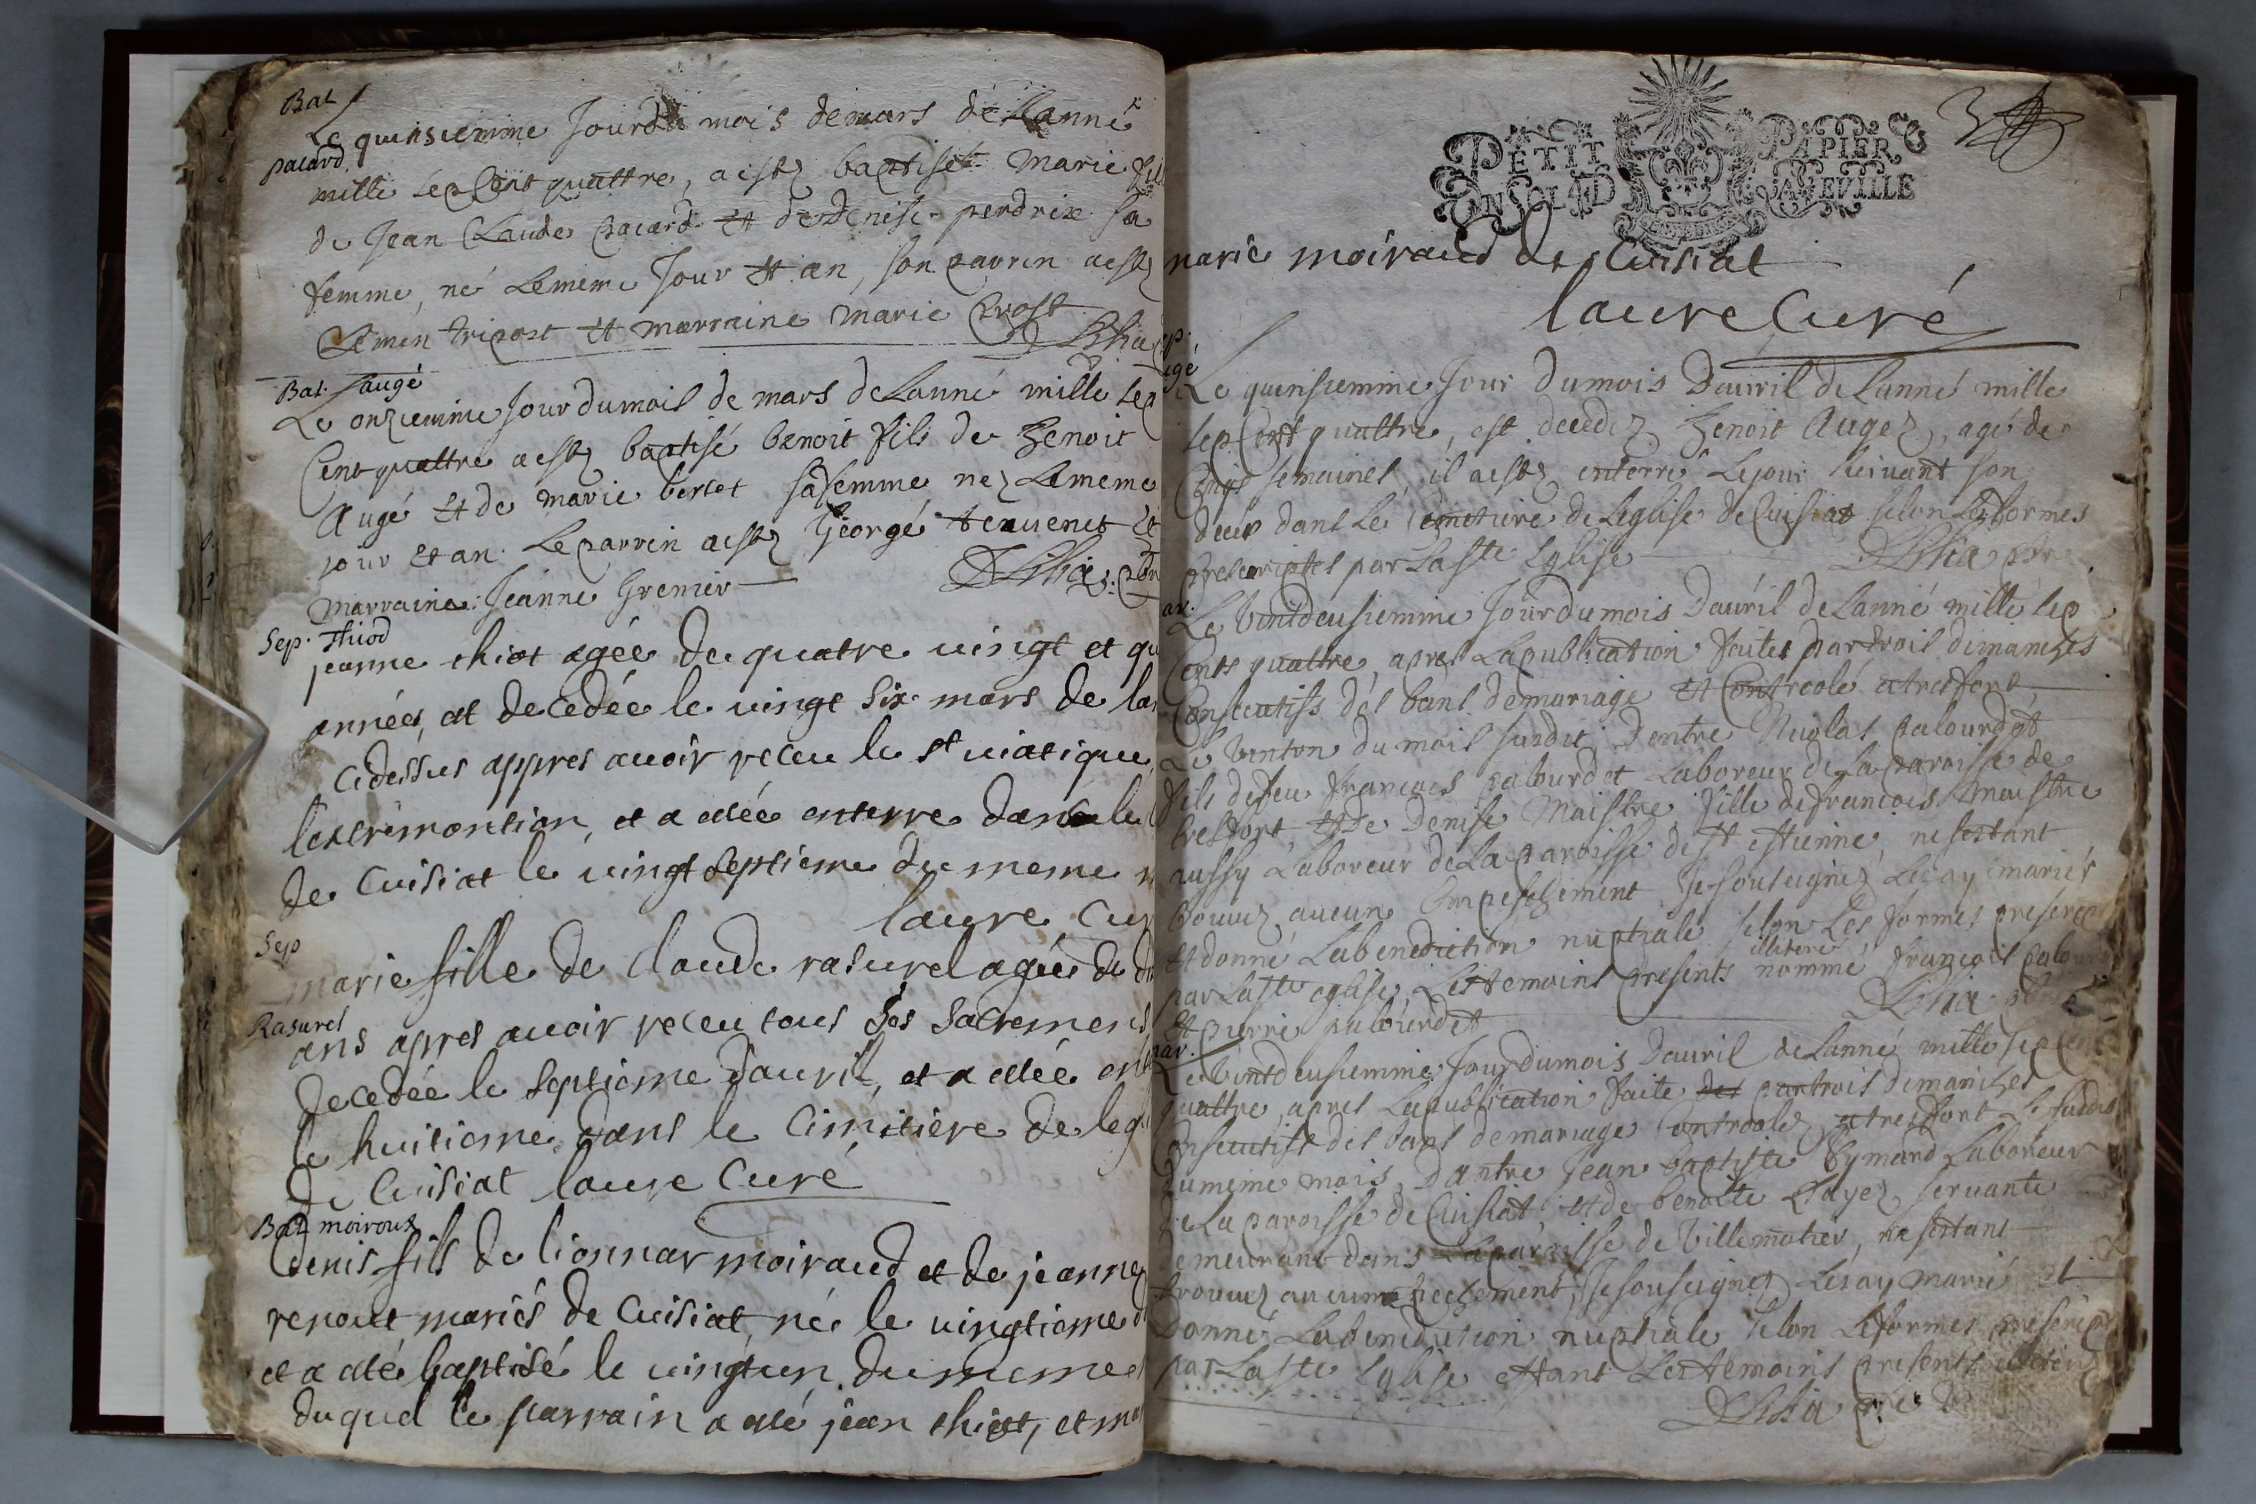 Bat
Le quinsiemme Jour du mois de mars de Lanné
pacard
mille sep Cent quattre, a esté baptisé Marie fil
de Jean Claude pacard Et de denise perdrix sa
femme, né Le meme Jour Et an, son parrin a esté
Clemen tripost Et marraine Marie prost
Bat. Laugé
Le onziemme Jour du mois de mars de Lanné mille sep
Cent quattre a esté baptisé benoit fils de benoit
Augé Et de marie bertet sa femme nez Le meme
jour et an. Le parrin a esté George teruenet et
marraine Jeanne Grenier
Sep. Thiod
jeanne thiot agée de quatre vingt et qu
années, et decedée le vingt six mars de lan
cidessus appres avoir receu le st viatique,
lextremontion, et a etée enterre dans le
de Cuisiat le vingt septieme du meme
laure Cur
Sep
marie fille de claude rasurel agée de d
Rasurel
ans apres avoir receu tous Ses Sacremens
decedée le septieme d'auril, et a etée en
le huitieme dans le Cimitière de leg
de Cuisiat laure Curé
Bat moiroux
denis fils de lionnar moiraud et de jeanne
renout mariés de Cuisiat, né le vingtieme d
et a eté baptisé le vingtun du meme
duquel le parrain a eté jean thiot, et m
PETIT PAPIER
UN SOL LA FEVILLE
3
marie moiraud de Cuisiat
laure Curé
Le quinsiemme Jour du mois Dauril de Lanneé mille
sep Cent quattre, est decedez benoit Augez, agé de
Cinqs semaines, il a esté enterré Le jour suivant son
deces dans Le cemetiere de Leglise de Cuisiat selon Les formes
prescriptes par La Ste Eglise
Le Vintdeusiemme Jour du mois Dauril de Lanné mille sep
Cents quattre, apres La publication faites par trois dimanches
Consecutifs des bans de mariage Et Controlé a tresfort
Le vinton du mois susdit, D'entre Nicolas palourdet
fils de feu francois palourdet Laboreur de La paroisse de
tresfort, Et de Denise Maistre fille de francois maistre
aussy Laboreur de La paroisse de St Estienne, ne sestant
trouvez aucun Empeschement Je sousignez Les ay mariés
Et donné La benediction nuptiale selon Les formes prescrip
par La Ste eglise, Les temoins presents illiterés nommé francois palour
Et pierre palourdet
Le Vintdeusiemme Jour du mois Dauril de Lanné mille sep Cent
quattre, apres La publication faite par trois dimanches
Consecutifs des bans de mariage Controolez a tresfort Le susdit
du meme mois, Dantre Jean baptiste Eymard Laboreur
de La paroisse de Cuisiat, Et de benoite servante
demeurant dans La paroisse de Villemotier, ne sestant
trouvez aucun empechement, Je sousignez Les ay mariés et
donné La benediction nuptiale selon Les formes prescrip
par La Ste Eglise estant Les temoins presents illiterez